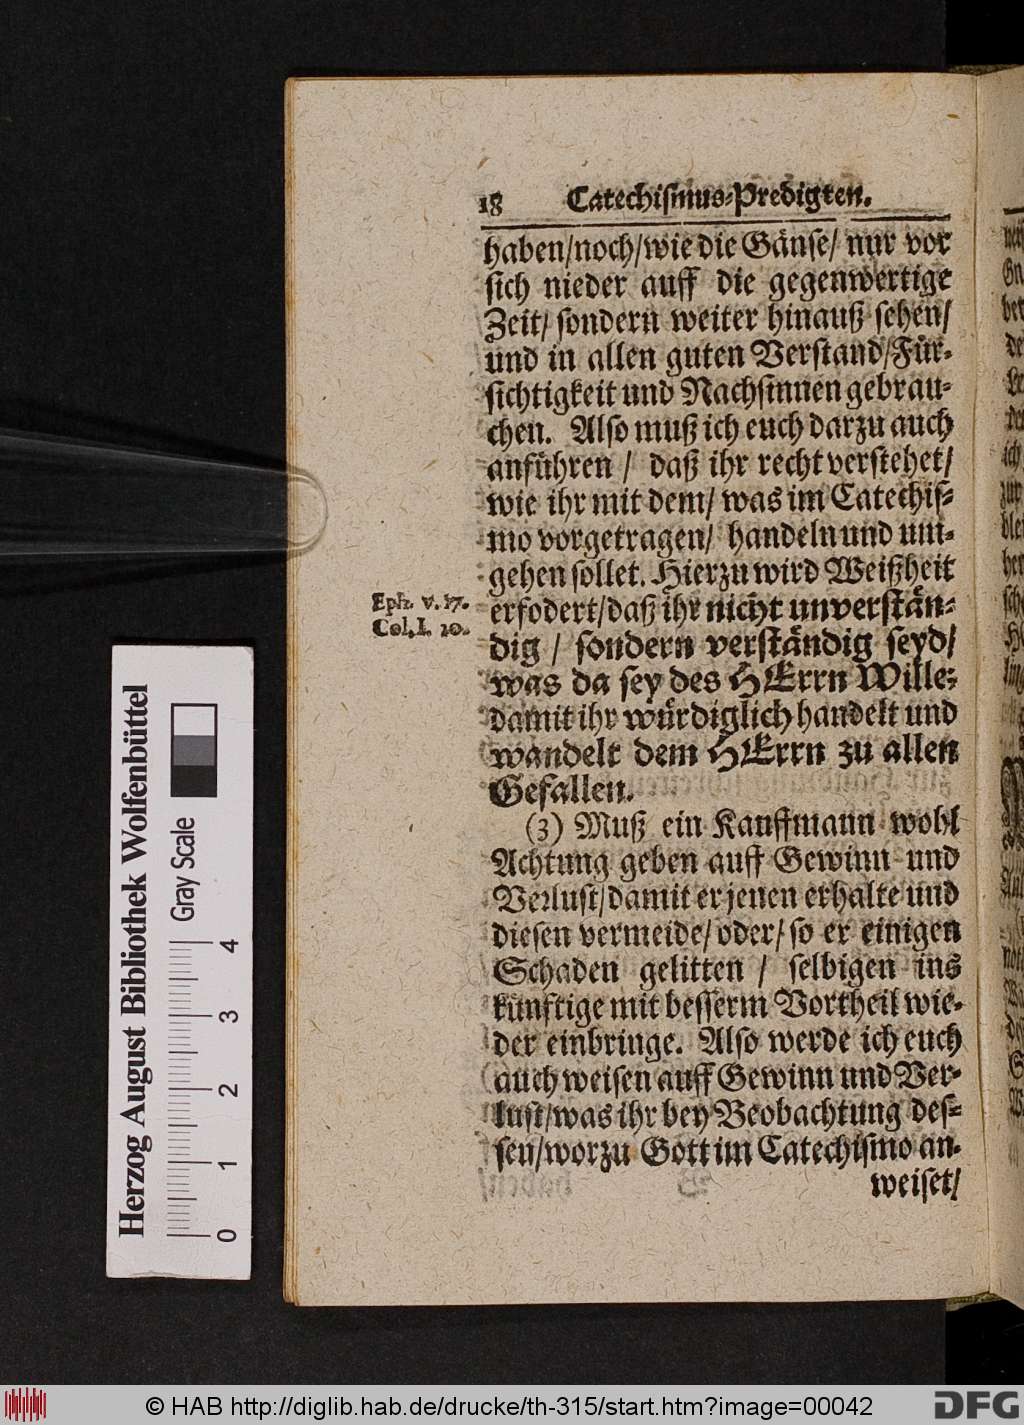 18 Catechismus-Predigten.
haben/noch/wie die Gänse/ nur vor
sich nieder auff die gegenwertige
Zeit/ sondern weiter hinauß sehen/
und in allen guten Verstand/Für-
sichtigkeit und Nachsinnen gebrau-
chen. Also muß ich euch darzu auch
anführen / daß ihr recht verstehet/
wie ihr mit dem/ was im Catechis-
mo vorgetragen/ handeln und um-
gehen sollet. Hierzu wird Weißheit
Eph. v. 17.
erfodert/daß ihr nicht unverstän-
Col. I. 10.
dig / sondern verständig seyd/
was da sey des HErrn Wille;
damit ihr würdiglich handelt und
wandelt dem HErrn zu allen
Gefallen.
(3) Muß ein Kauffmann wohl
Achtung geben auff Gewinn und
Verlust/damit er jenen erhalte und
diesen vermeide/ oder/ so er einigen
Schaden gelitten / selbigen ins
künftige mit besserm Vortheil wie-
der einbringe. Also werde ich euch
auch weisen auff Gewinn und Ver-
lust/was ihr bey Beobachtung des-
sen/worzu Gott im Catechismo an-
weiset/
Herzog August Bibliothek Wolfenbüttel
Gray Scale
0 1 2 3 4
© HAB http://diglib.hab.de/drucke/th-315/start.htm?image=00042
DFG